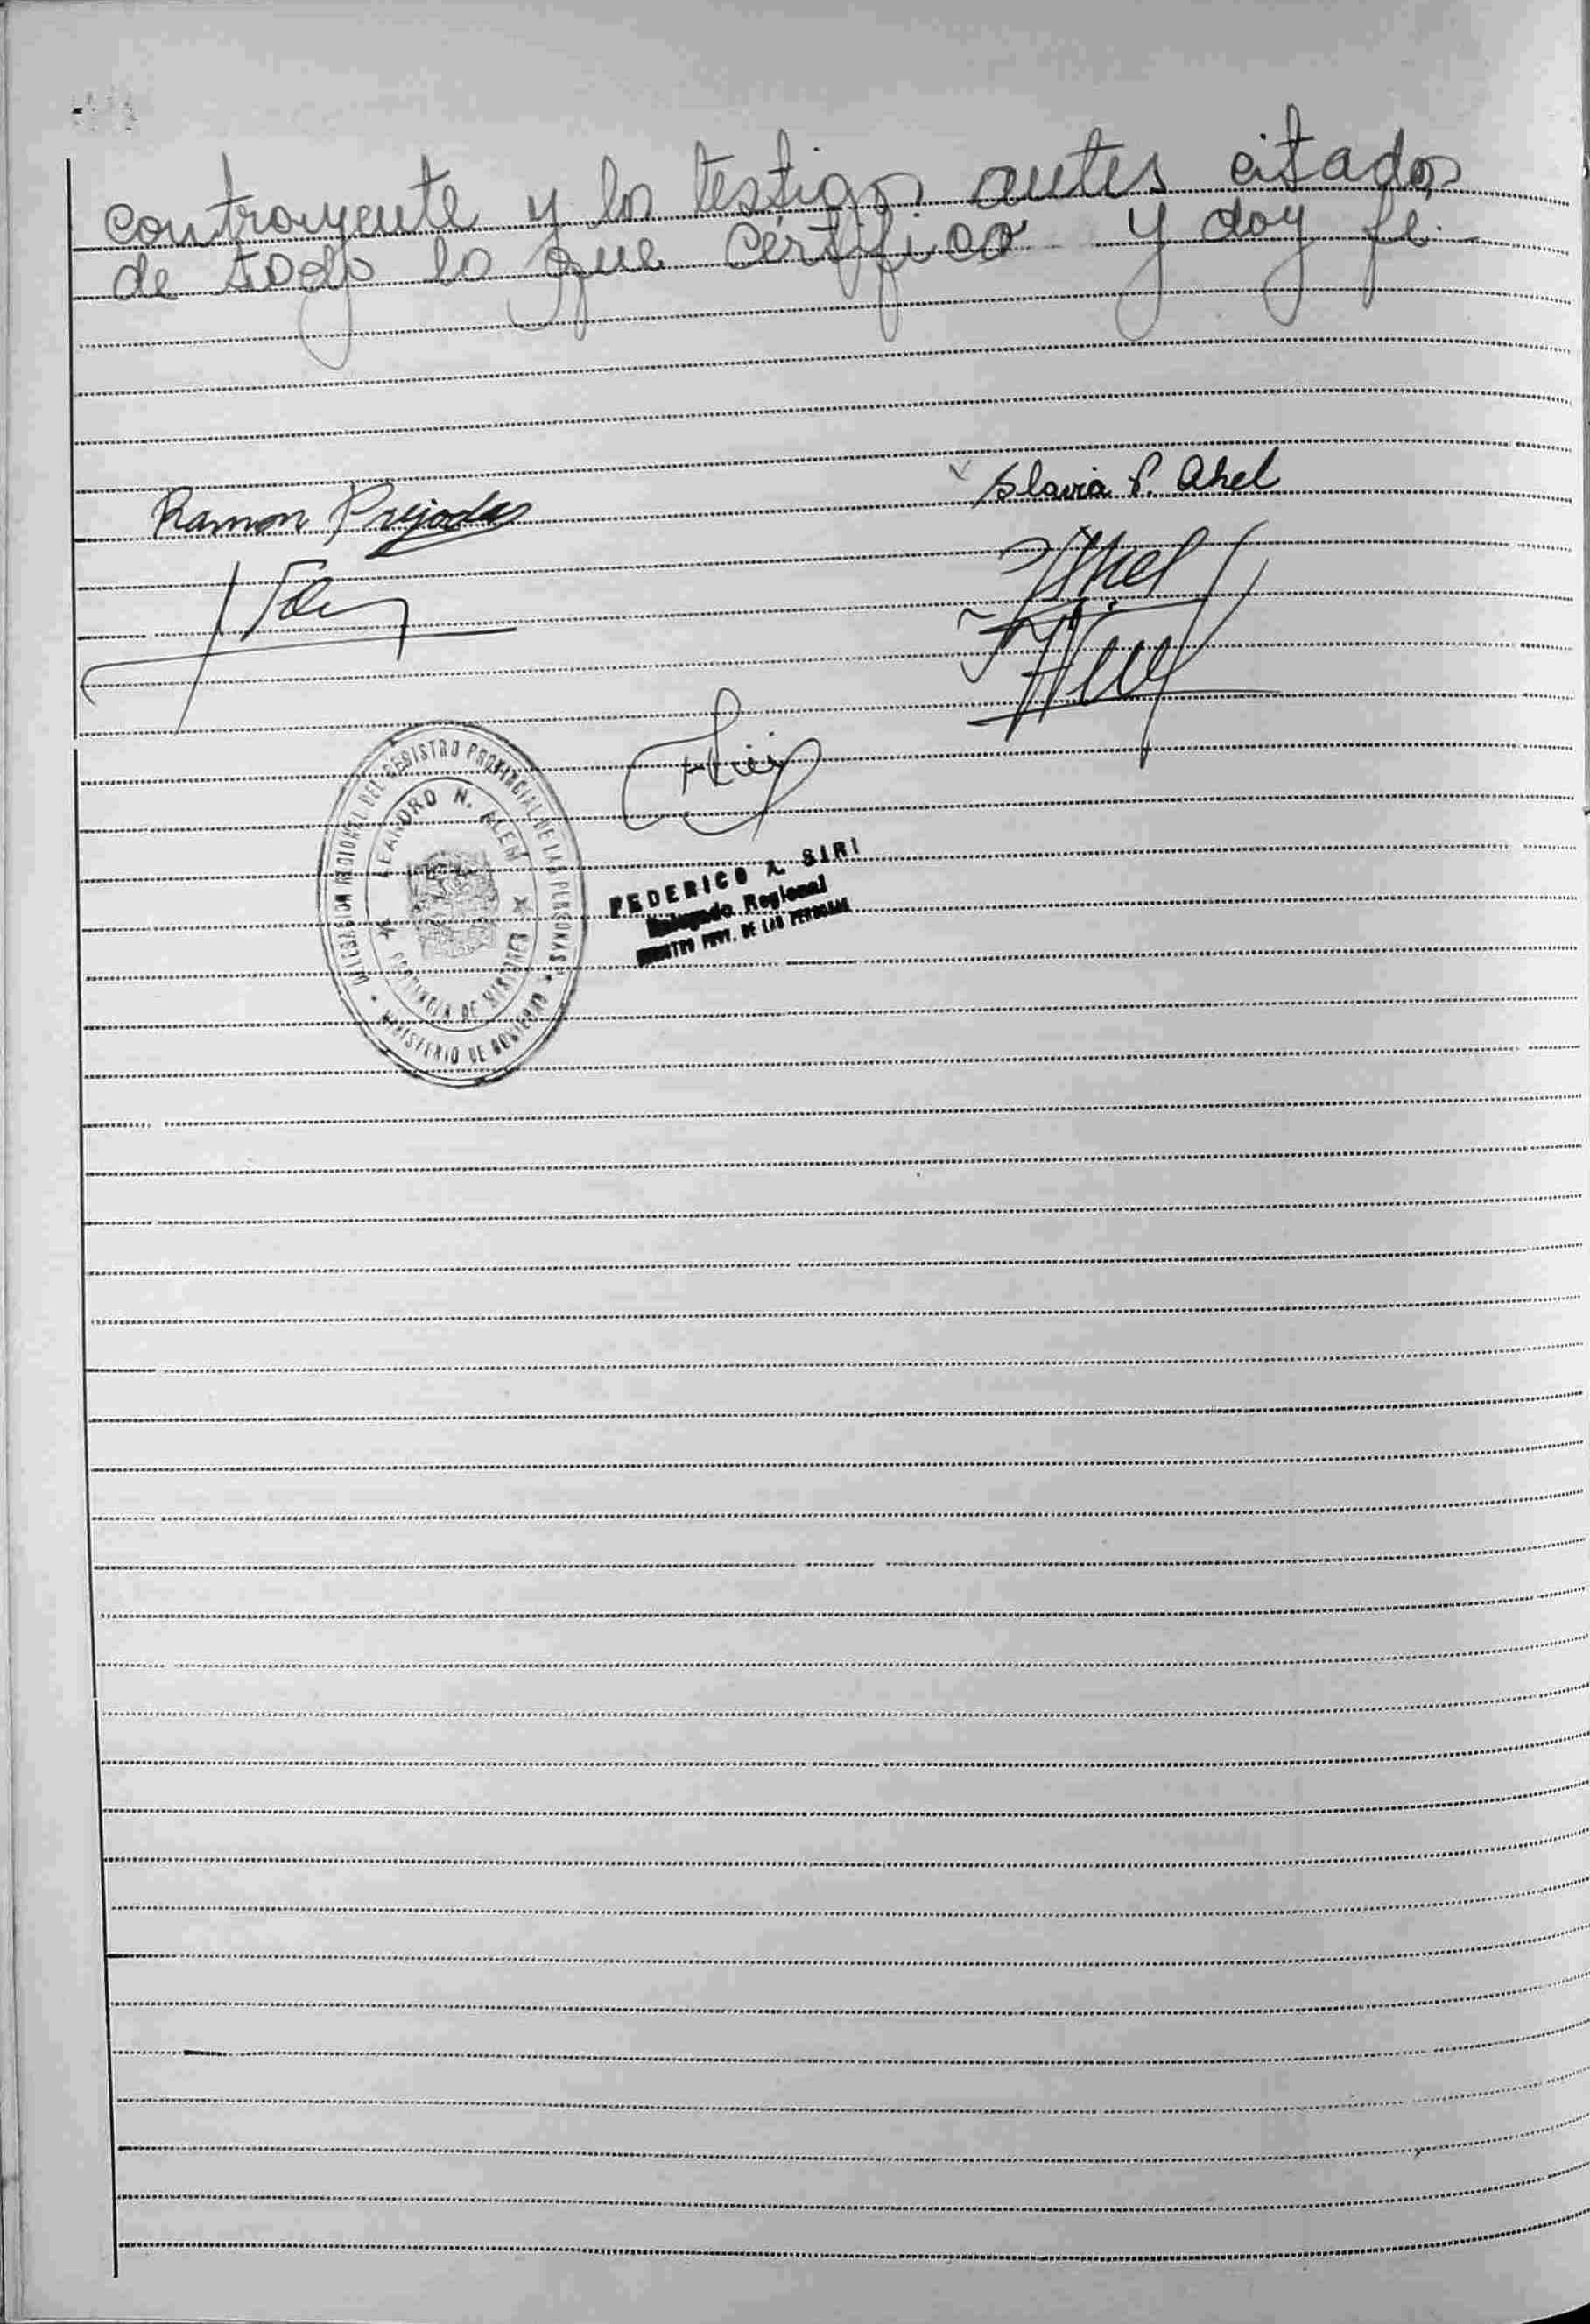 contrayente y los testigos antes citados
de todo lo que certifico y doy fé.
Ramon Prejoda
Slavia P. Ahel
DELEGACION REGIONAL DEL REGISTRO PROVINCIAL DE LAS PERSONAS
LEANDRO N. ALEM
PROVINCIA DE MISIONES
MINISTERIO DE GOBIERNO
FEDERICO A. SIRI
Delegado Regional
REGISTRO PROV. DE LAS PERSONAS